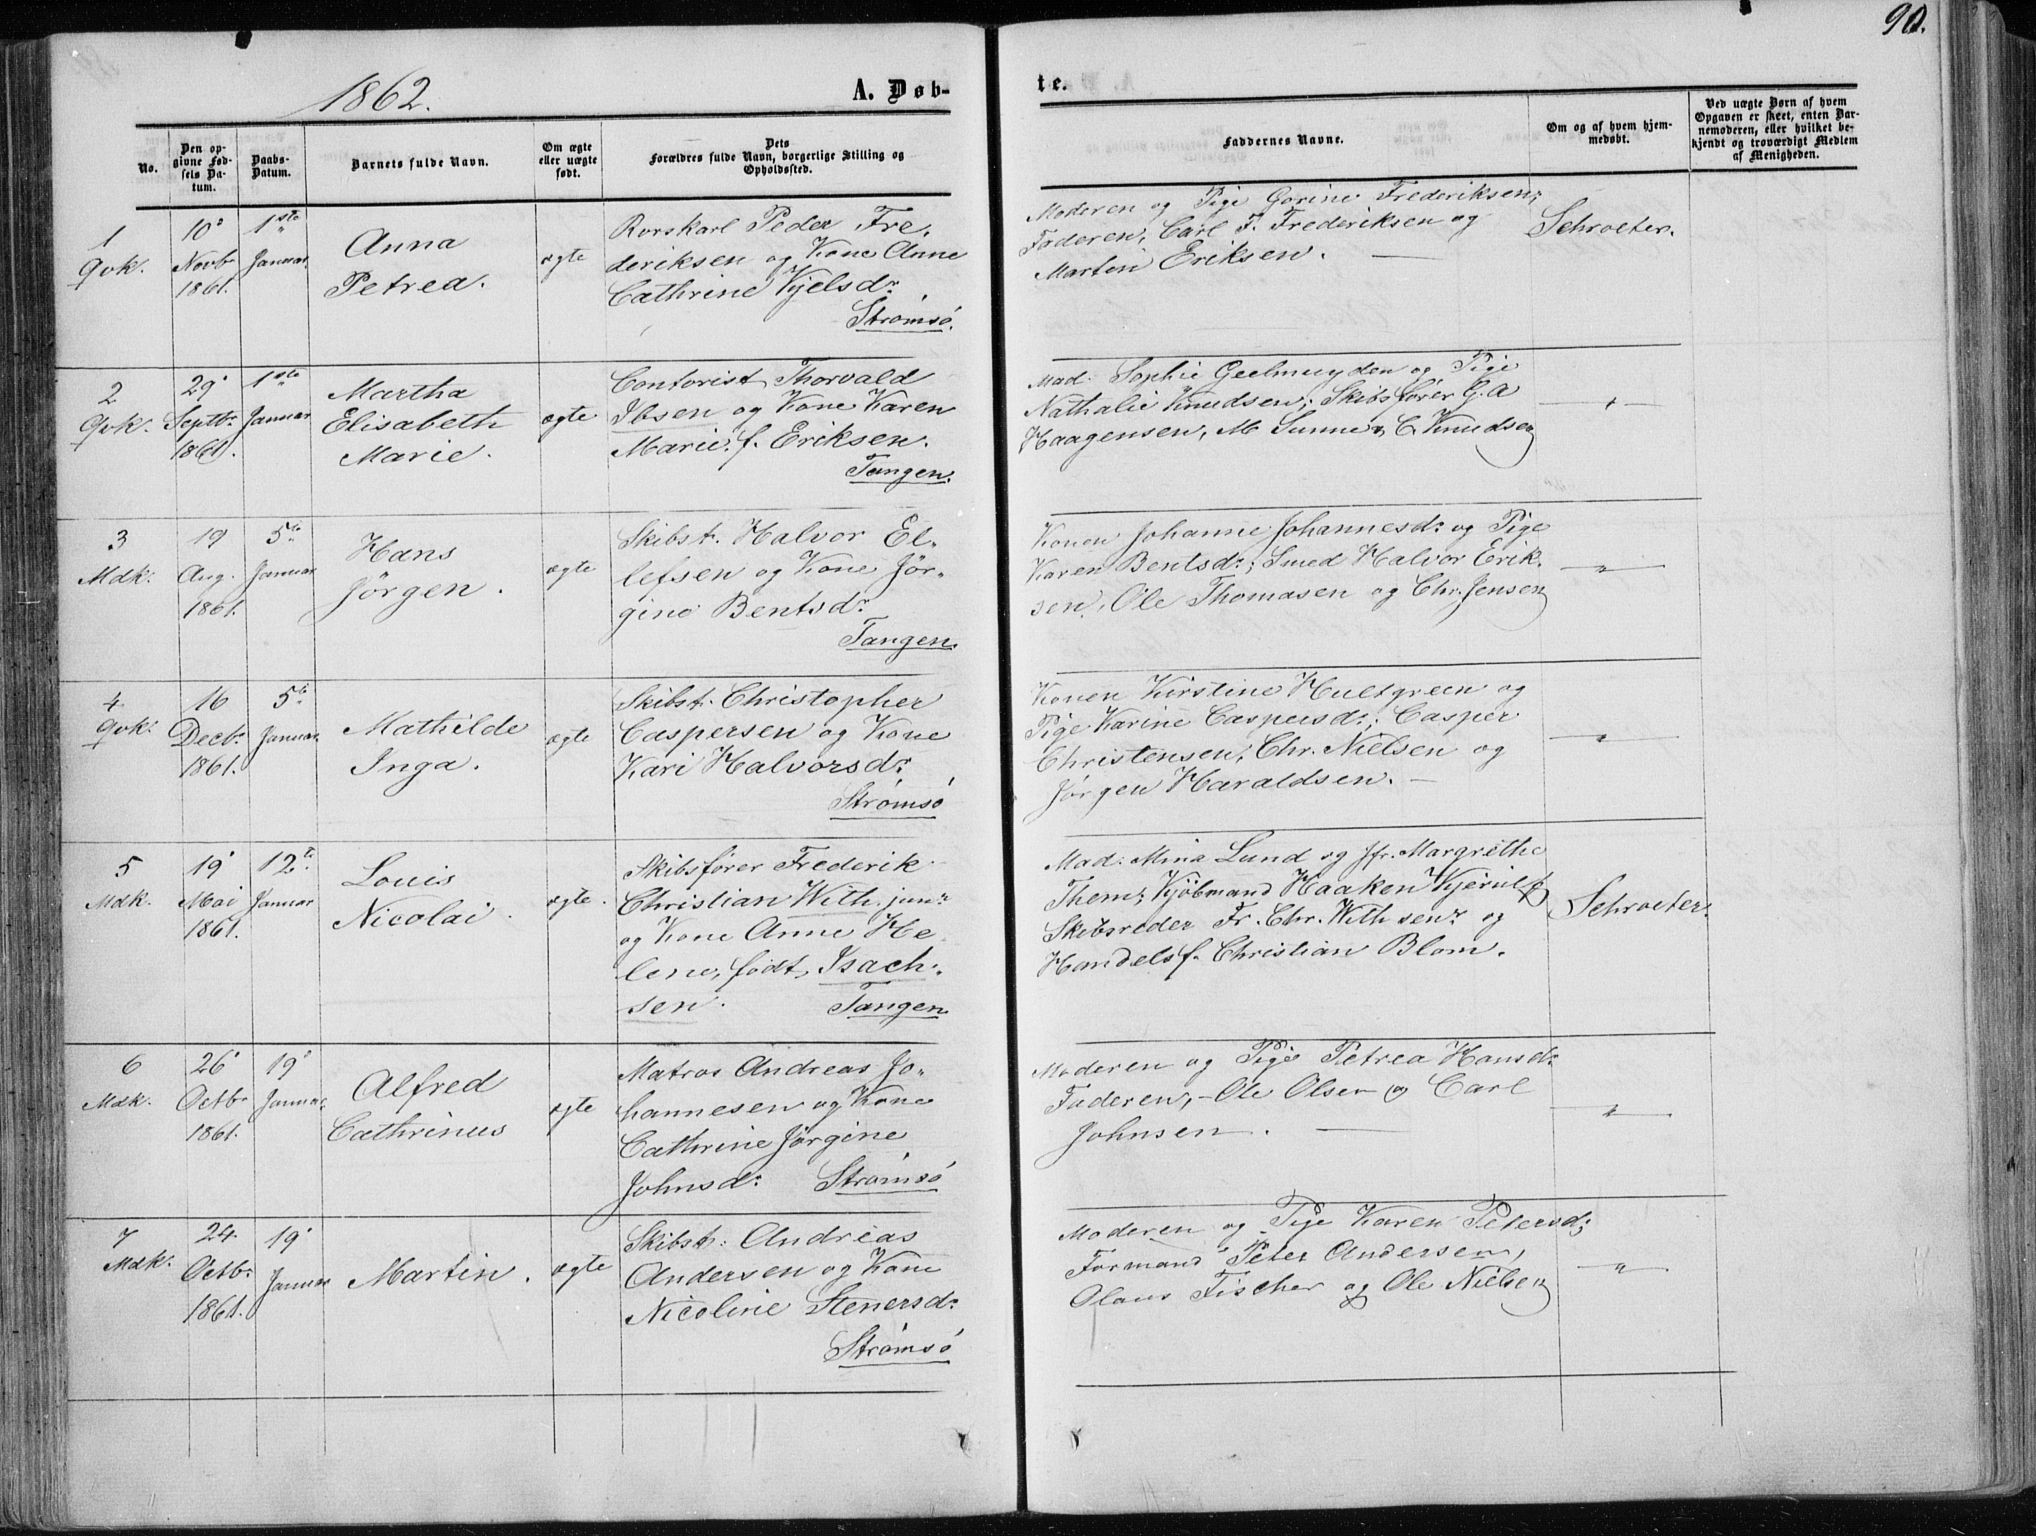 90.
1862.
A. Døb-
te.
No.
Den op-
givne Fød-
sels Da-
tum.
Daabs-
Datum.
Barnets fulde Navn.
Om ægte
eller uægte
født.
Dets
Forældres fulde Navn, borgerlige Stilling og
Opholdssted.
Faddernes Navne.
Om og af hvem hjem-
medøbt.
Ved uægte Børn af hvem
Opgaven er skeet, enten Bar-
nemoderen, eller hvilket be-
kjendt og troværdigt Medlem
af Menigheden.
1
Qvk.
10
Novbr
1861.
1ste
Januar.
Anna
Petrea.
ægte
Rorskarl Peder Fre,
deriksen og Kone Anne
Cathrine Kjelsdr
Strømsö.
Moderen og Pige Gorine Frederiksen;
Faderen, Carl F. Frederiksen og
Martin Eriksen.
Schroeter.
2
Qvk.
29
Septbr
1861.
1ste
Januar
Martha
Elisabeth
Marie.
ægte
Contorist Thorvald
Ibsen og Kone Karen
Marie f. Eriksen.
Tangen.
Mad. Sophie Geelmuyden og Pige
Nathalie Knudsen; Skibsfører G. A
Haagensen, M Sunne & C. Knudsen
— " —
3
Mdk.
19
Aug.
1861.
5te
Januar
Hans
Jørgen.
ægte
Skibst. Halvor El-
lefsen og Kone Jør-
gine Bentsdr
Tangen.
Konen Johanne Johannesdr og Pige
Karen Bentsdr; Smed Halvor Erik-
sen, Ole Thomasen og Chr. Jensen
— " —
4
Qvk.
16
Decbr
1861.
5te
Januar.
Mathilde
Inga.
ægte
Skibst. Christopher
Caspersen og Kone
Kari Halvorsdr
Strömsö
Konen Kirstine Hultgreen og
Pige Karine Caspersdr; Casper
Christensen, Chr. Nielsen og
Jørgen Haraldsen.
— " —
5
Mdk.
19
Mai
1861.
12te
Januar
Louis
Nicolai.
ægte.
Skibsfører Frederik
Christian With junr
og Kone Anne He-
lene, født Isach-
sen. Tangen
Mad. Mina Lund og Jfr. Margrethe
Them; Kjöbmand Haaken Kjerulf
Skibsreder Fr. Chr. With senr og
Handelsf. Christian Blom.
Schroeter.
6
Mdk.
26
Octbr
1861.
19
Januar.
Alfred
Cathrinus
ægte
Matros Andreas Jo-
hannesen og Kone
Cathrine Jørgine
Johnsdr Strömsö
Moderen og Pige Petrea Hansdr
Faderen, Ole Olsen og Carl
Johnsen.
— " —
7
Mdk.
24
Octbr
1861.
19
Januar
Martin.
ægte
Skibst. Andreas
Andersen og Kone
Nicoline Stenersdr
Strömsö
Moderen og Pige Karen Petersd;
Formand Peter Andersen,
Olaus Fischer og Ole Nielsen
— " —